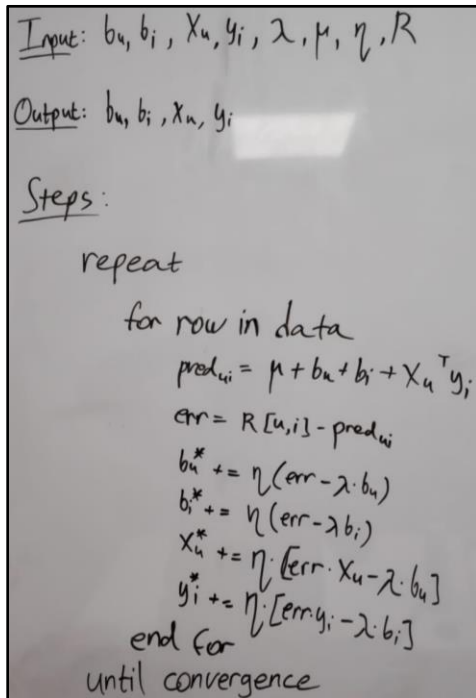 Input: bu, bi, Xu, yi, λ, μ, η, R
Output: bu, bi, Xu, yi
Steps:
repeat
for row in data
predui = μ + bu + bi + Xu^T yi
err = R[u,i] - predui
bu* += η(err - λ·bu)
bi* += η(err - λbi)
Xu* += η·[err·Xu - λ·bu]
yi* += η·[err·yi - λ·bi]
end for
until convergence